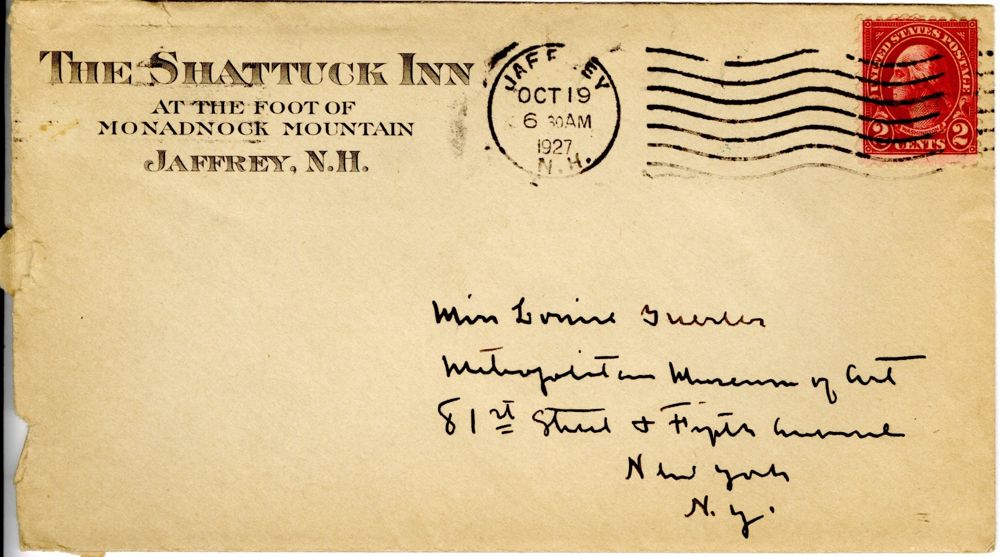 THE SHATTUCK INN
AT THE FOOT OF
MONADNOCK MOUNTAIN
JAFFREY, N.H.
JAFF EY
OCT 19
6 30AM
1927
N.H.
UNITED STATES POSTAGE
2 CENTS 2
Miss Louise
Metropolitan Museum of Art
81st Street & Fifth Avenue
New York
N.Y.